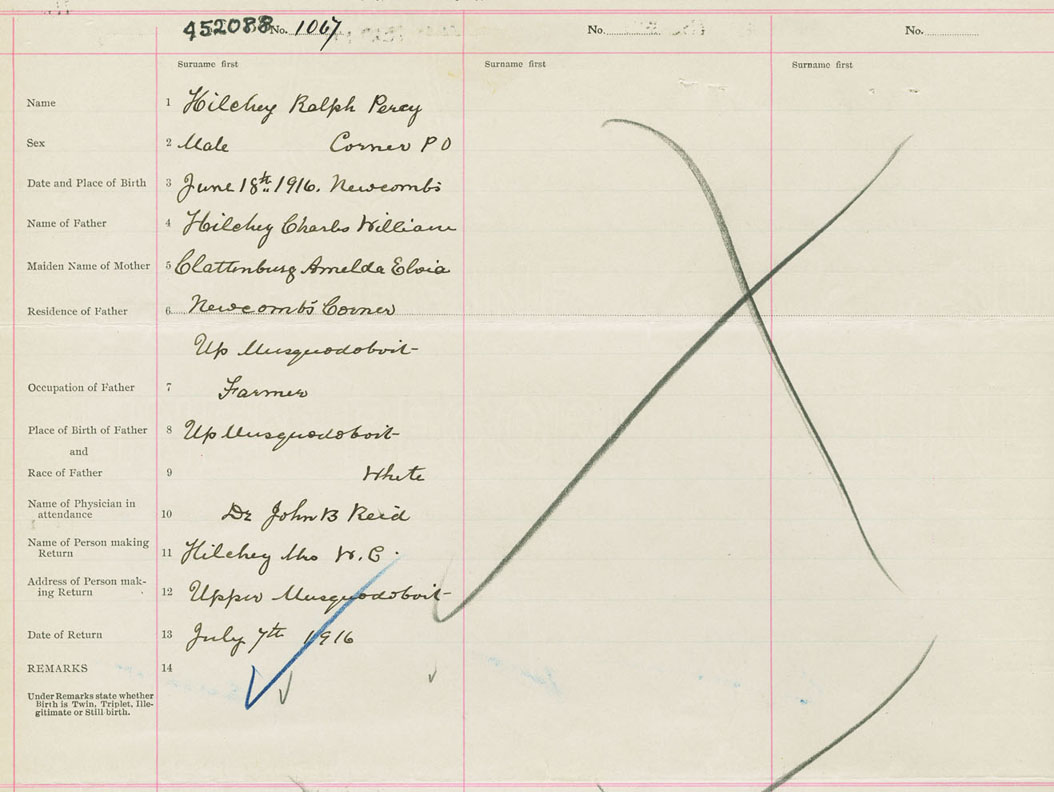 452088 No. 1067 No. No.
Surname first Surname first Surname first
Name 1 Hilchey Ralph Percy
Sex 2 Male Corner P O
Date and Place of Birth 3 June 18th 1916. Newcombs
Name of Father 4 Hilchey Charles William
Maiden Name of Mother 5 Clattenburg Amelda Elvia
Residence of Father 6 Newcombs Corner
Up Musquodoboit
Occupation of Father 7 Farmer
Place of Birth of Father 8 Up Musquodoboit
and
Race of Father 9 White
Name of Physician in
attendance 10 Dr John B Reid
Name of Person making
Return 11 Hilchey Mrs W. C.
Address of Person mak-
ing Return 12 Upper Musquodoboit
Date of Return 13 July 7th 1916
REMARKS 14
Under Remarks state whether
Birth is Twin, Triplet, Ille-
gitimate or Still birth.